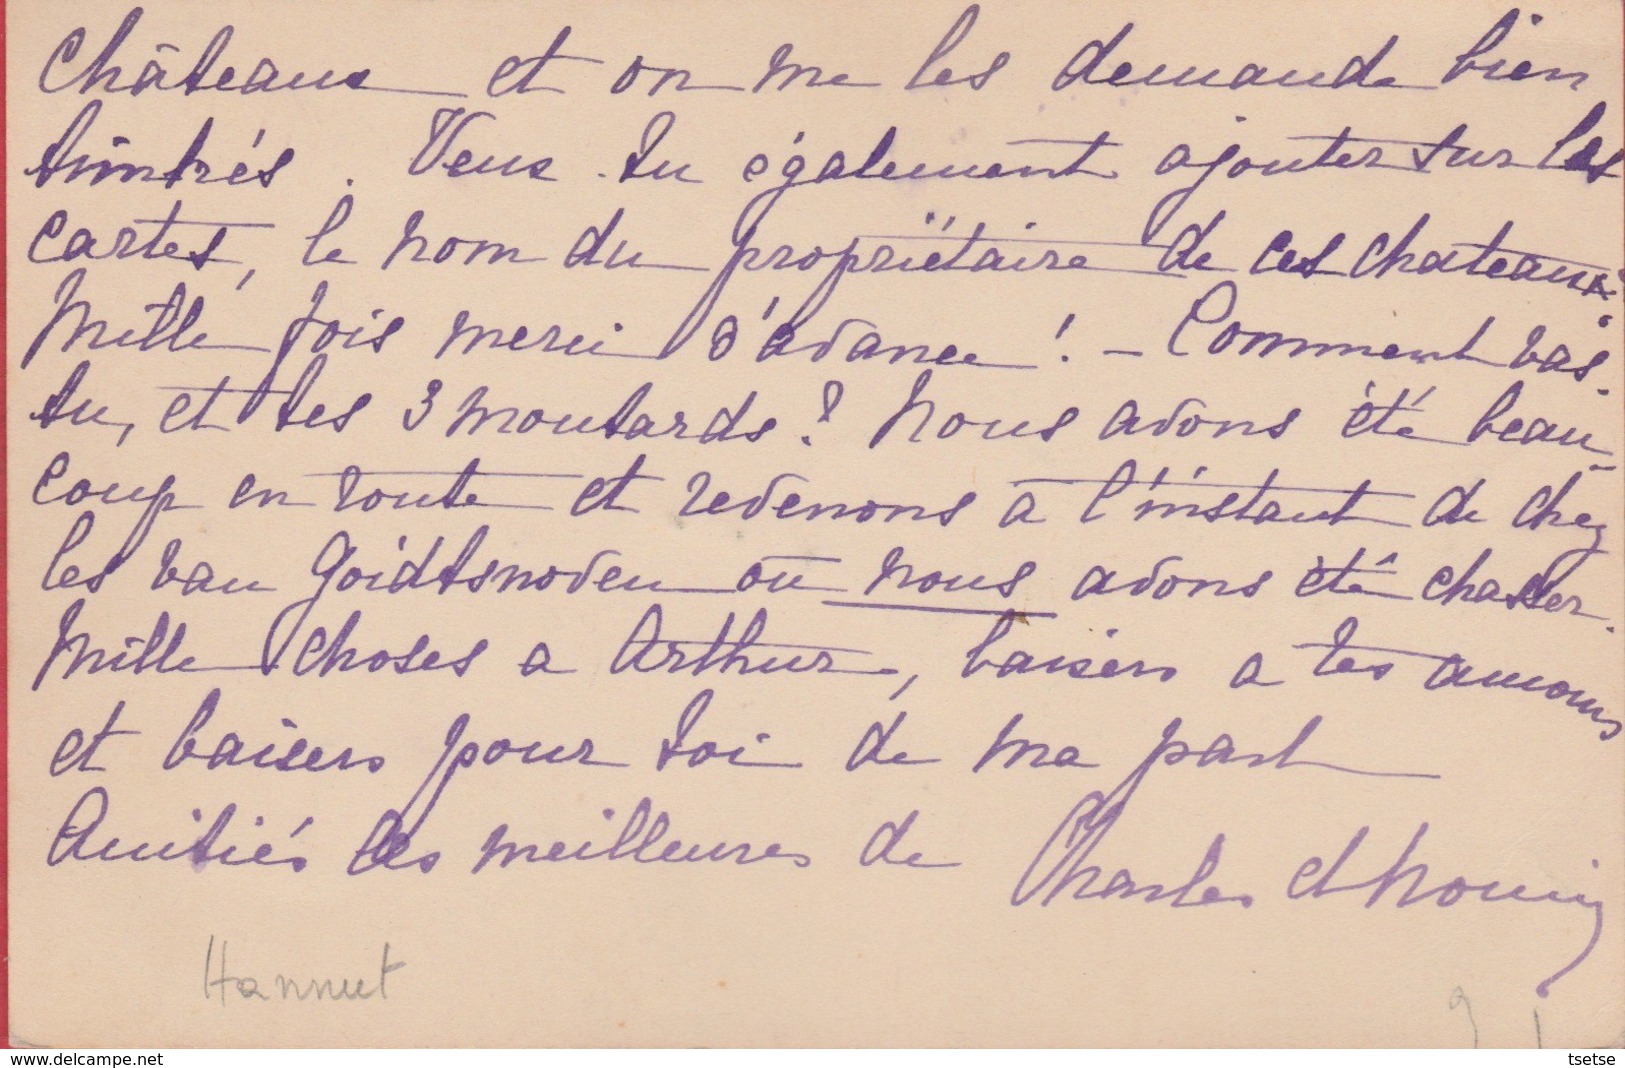 Châteaux et on me les demande bien
timbrés. Veux-tu également ajouter sur les
cartes, le nom du propriétaire de ces chateaux
Mille fois merci d'avance ! - Comment vas-
tu, et tes 3 moutards ? Nous avons été beau-
coup en route et revenons à l'instant de chez
les van Goidtsnoven où nous avons été chasser.
Mille choses a Arthur, baisers a tes amours
et baisers pour toi de ma part
Amitiés les meilleures de Charles et
Hannut
www.delcampe.net
tsetse